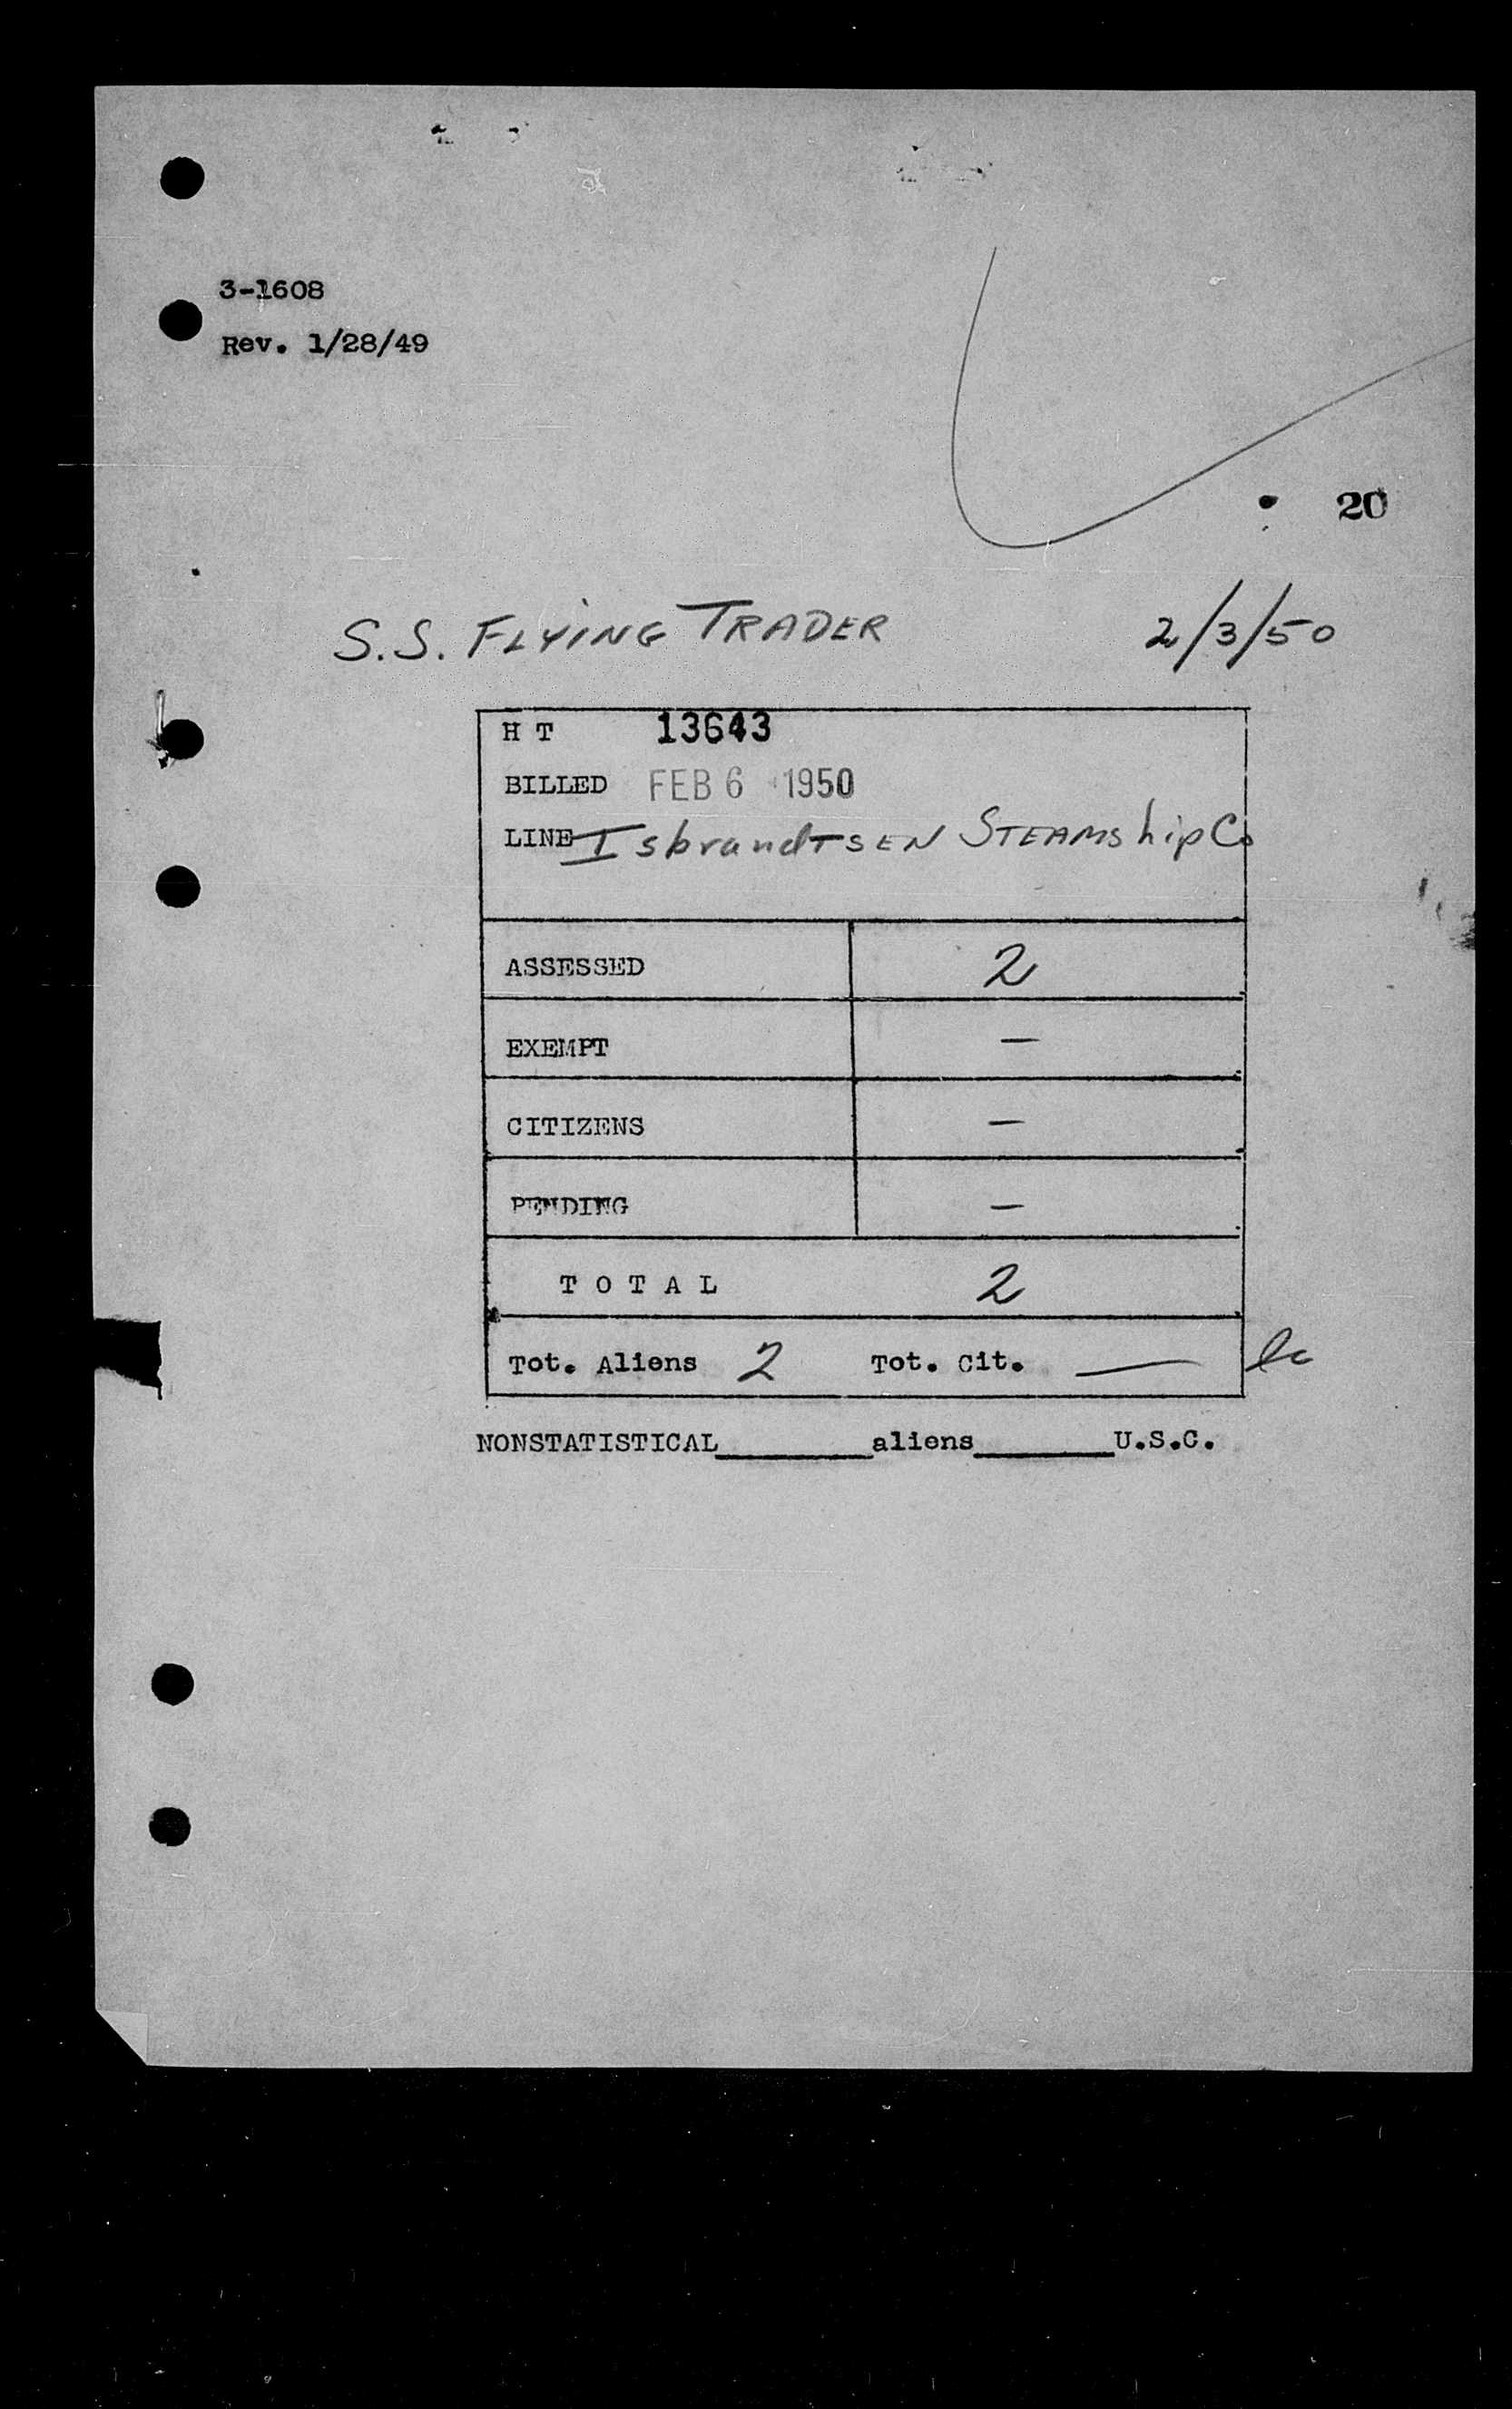 3-1608
Rev. 1/28/49
20
S.S. FLYING TRADER 2/3/50
H T 13643
BILLED FEB 6 1950
LINE Isbrandtsen Steamship Co
ASSESSED 2
EXEMPT —
CITIZENS —
PENDING —
T O T A L 2
Tot. Aliens 2 Tot. Cit. —
NONSTATISTICAL________aliens________U.S.C.